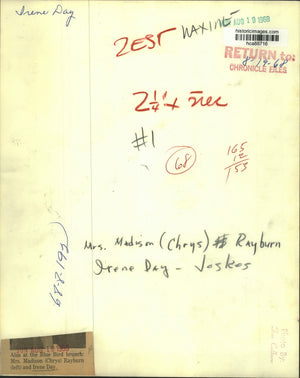 Irene Day
ZEST MAXINE
AUG 19 1968
historicimages.com
hca86716
RETURN to:
8-19-68
CHRONICLE FILES
2 1/4" x
#1
68
165
12
153
Mrs. Madison (Chrys) Rayburn
Irene Day - Joskes
Also at the Blue Bird brunch:
Mrs. Madison (Chrys) Rayburn
(left) and Irene Day.
Photo By: